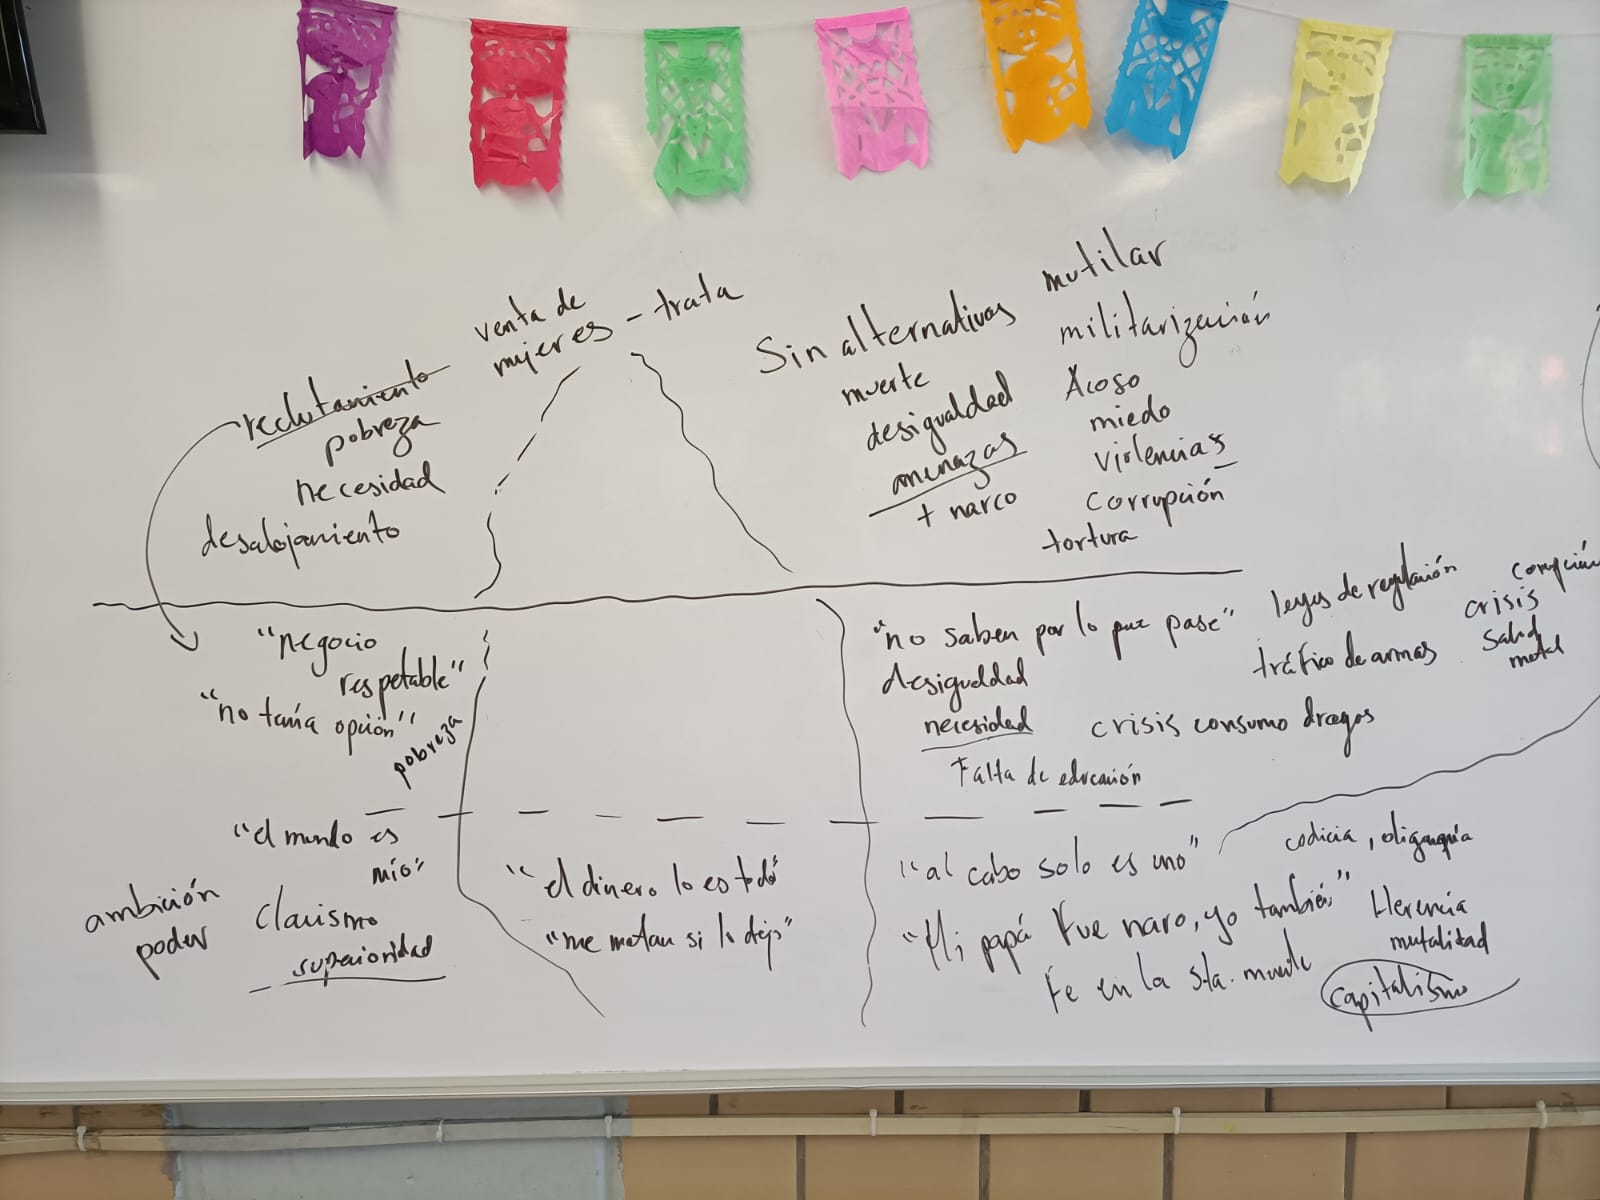 venta de
mujeres - trata
reclutamiento
pobreza
necesidad
desalojamiento
Sin alternativas
muerte
desigualdad
amenazas
+ narco
mutilar
militarización
Acoso
miedo
violencias
corrupción
tortura
"negocio
respetable"
"no tenía opción"
pobreza
"no saben por lo que pase"
desigualdad
necesidad
Falta de educación
crisis consumo drogas
leyes de regulación
tráfico de armas
corrupción
crisis
salud
mental
"el mundo es
mío"
ambición
poder
Clasismo
superioridad
"el dinero lo es todo"
"me matan si lo dejo"
"al cabo solo es uno"
"Mi papá fue narco, yo también"
Fe en la sta. muerte
codicia, oligarquía
Herencia
mutalidad
capitalismo